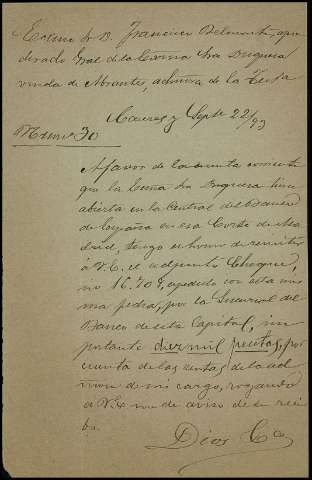 Excmo Sr D. Francisco Belmonte, apo
derado Gral de la Excma Sra Duquesa
viuda de Abrantes, admora de la Testa
Caceres y Septe 22/93
Numo 30
A favor de la cuenta corriente
que la Excma Sra Duquesa tiene
abierta en la Central del Banco
de España en esa Corte de Ma
drid, tengo el honor de remitir
á V.E. el adjunto Cheque,
no 16.709, espedido con esta mis
ma fecha, por la Sucursal del
Banco de esta Capital, im
portante diez mil pesetas, por
cuenta de las rentas de la ad
mon de mi cargo, rogando
a V.E. me de aviso de su reci
bo.
Dios &a